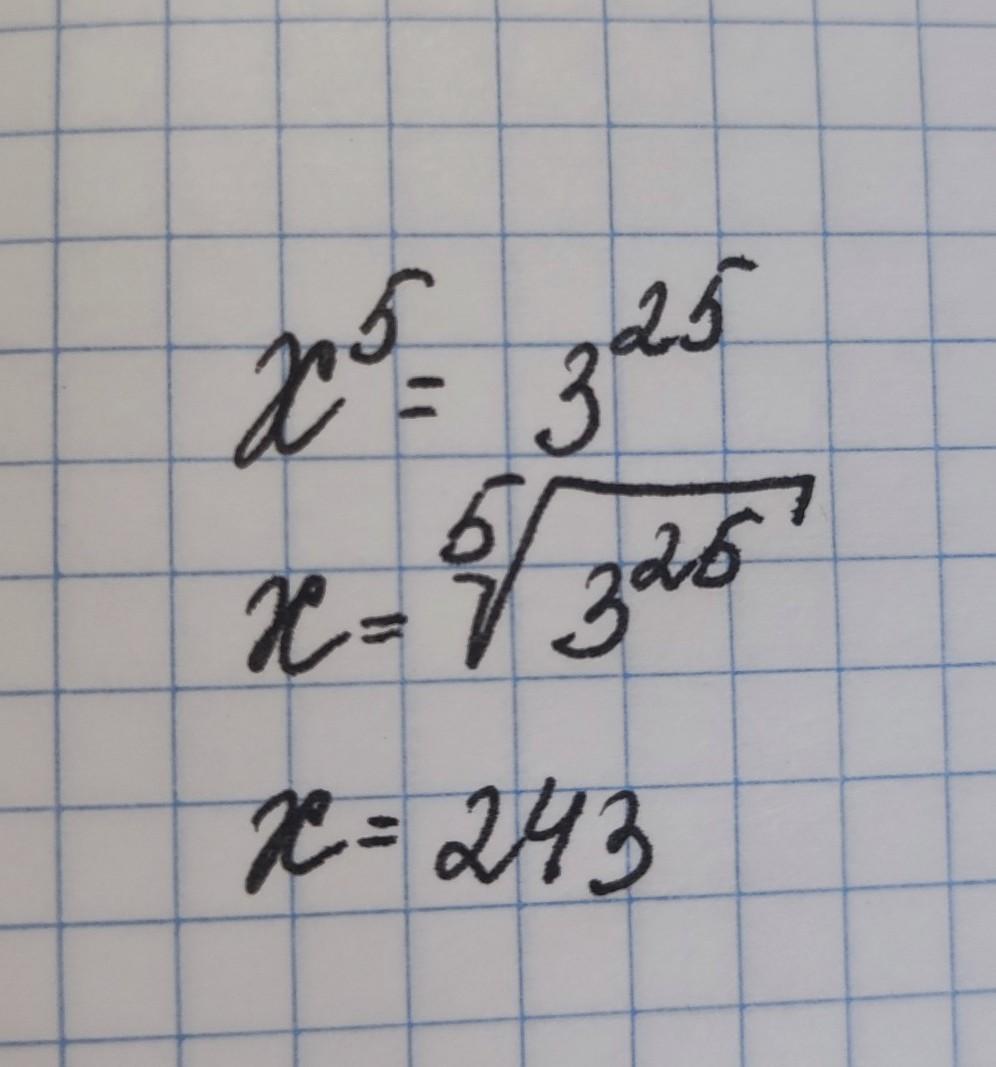 x⁵ = 3²⁵
x = ⁵√3²⁵
x = 243